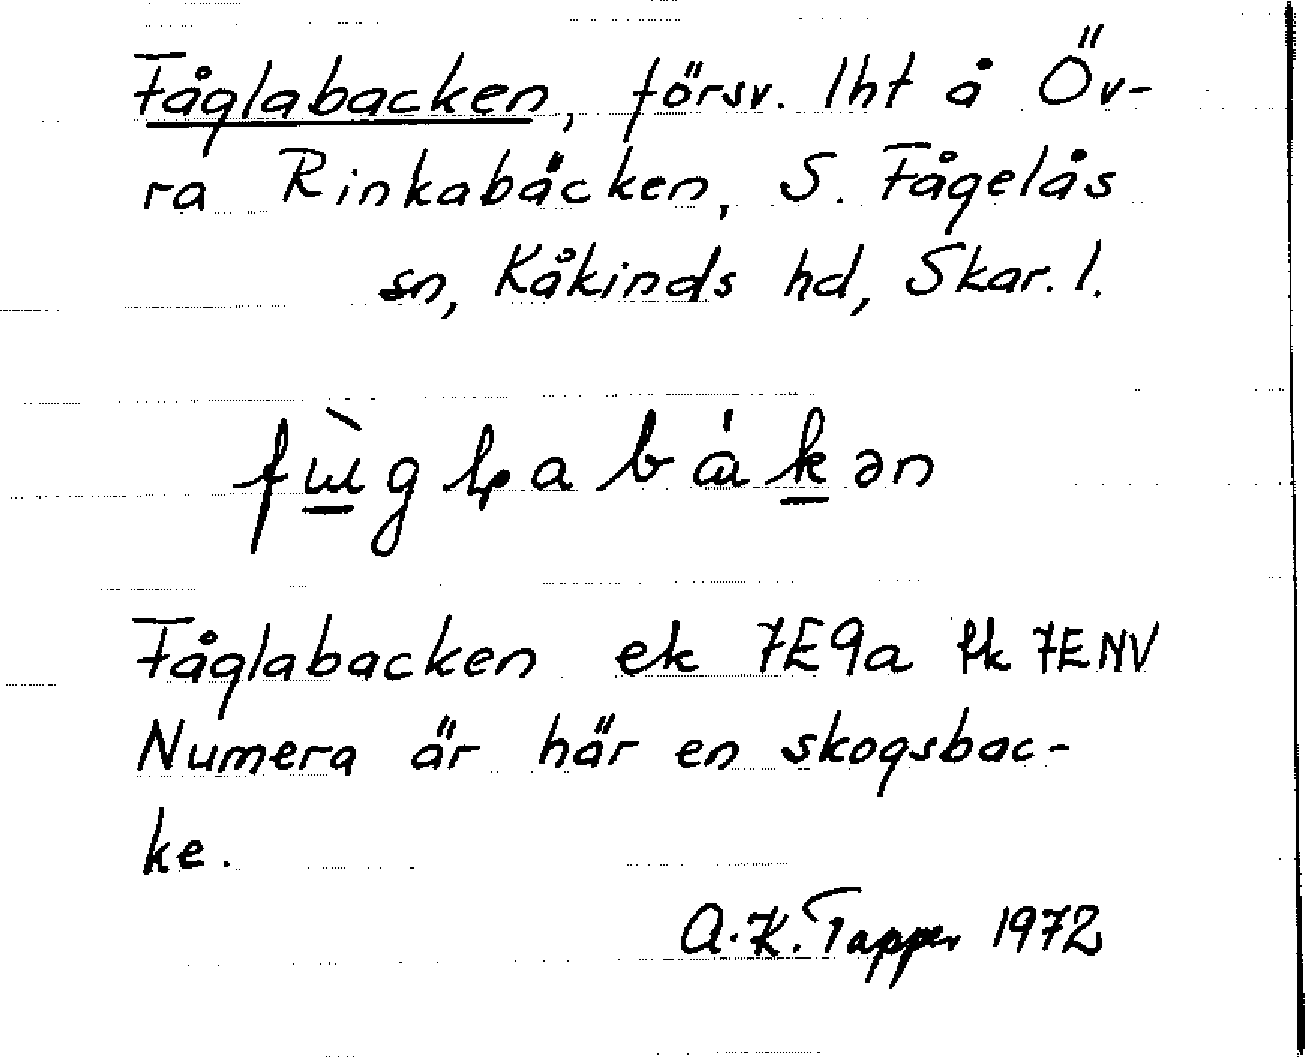 Fåglabacken, försv. lht å Öv-
ra Rinkabäcken, S. Fågelås
sn, Kåkinds hd, Skar. l.
Fåglabacken ek 7E9a tk 7ENV
Numera är här en skogsbac-
ke.
A.K. Tapper 1972